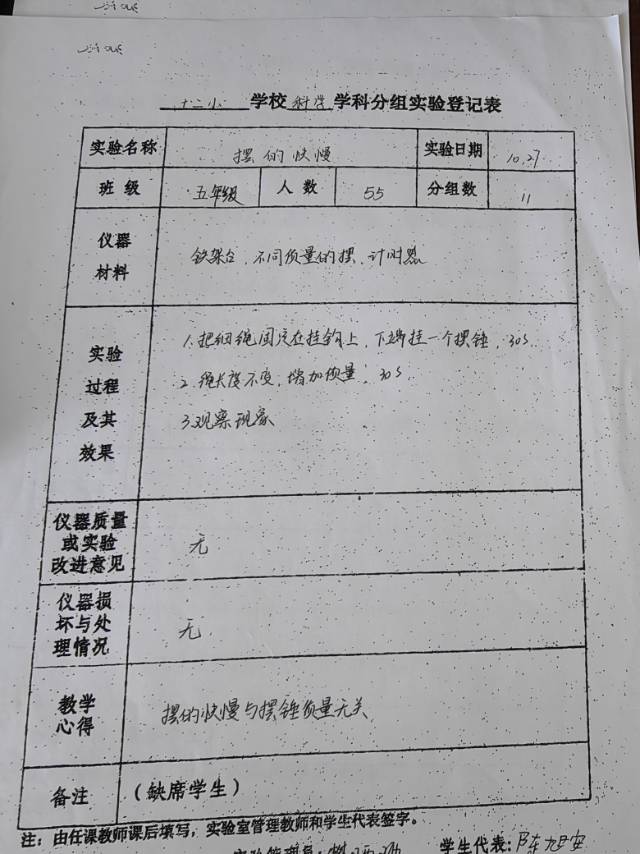 十二小 学校 科学 学科分组实验登记表
实验名称 摆的快慢 实验日期 10.27
班级 五年级 人数 55 分组数 11
仪器材料 铁架台、不同质量的摆、计时器
实验过程及其效果
1.把细绳固定在挂钩上，下端挂一个摆锤，30s.
2.绳长度不变，增加质量，30s.
3.观察现象
仪器质量或实验改进意见 无
仪器损坏与处理情况 无.
教学心得 摆的快慢与摆锤质量无关
备注 (缺席学生)
注：由任课教师课后填写，实验室管理教师和学生代表签字。
学生代表: